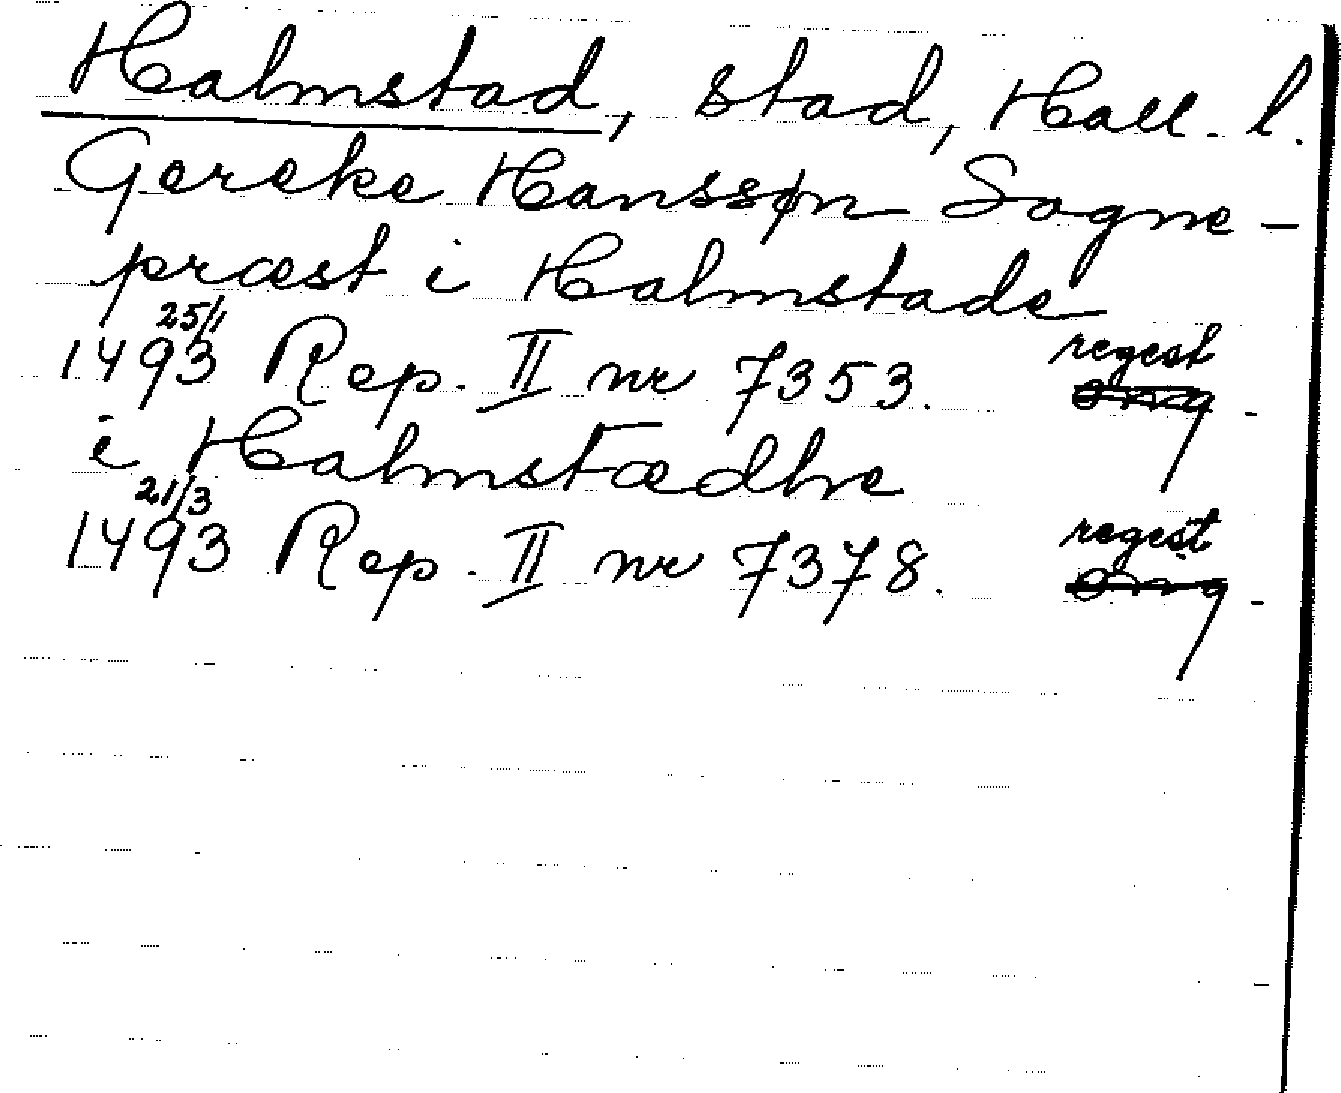 Halmstad, stad, Hall. l.
Gereke Hanssøn Sogne-
præst i Halmstade
25/1
1493 Rep. II nr 7353. regest
i Halmstædhe
21/3
1493 Rep. II nr 7378. regest